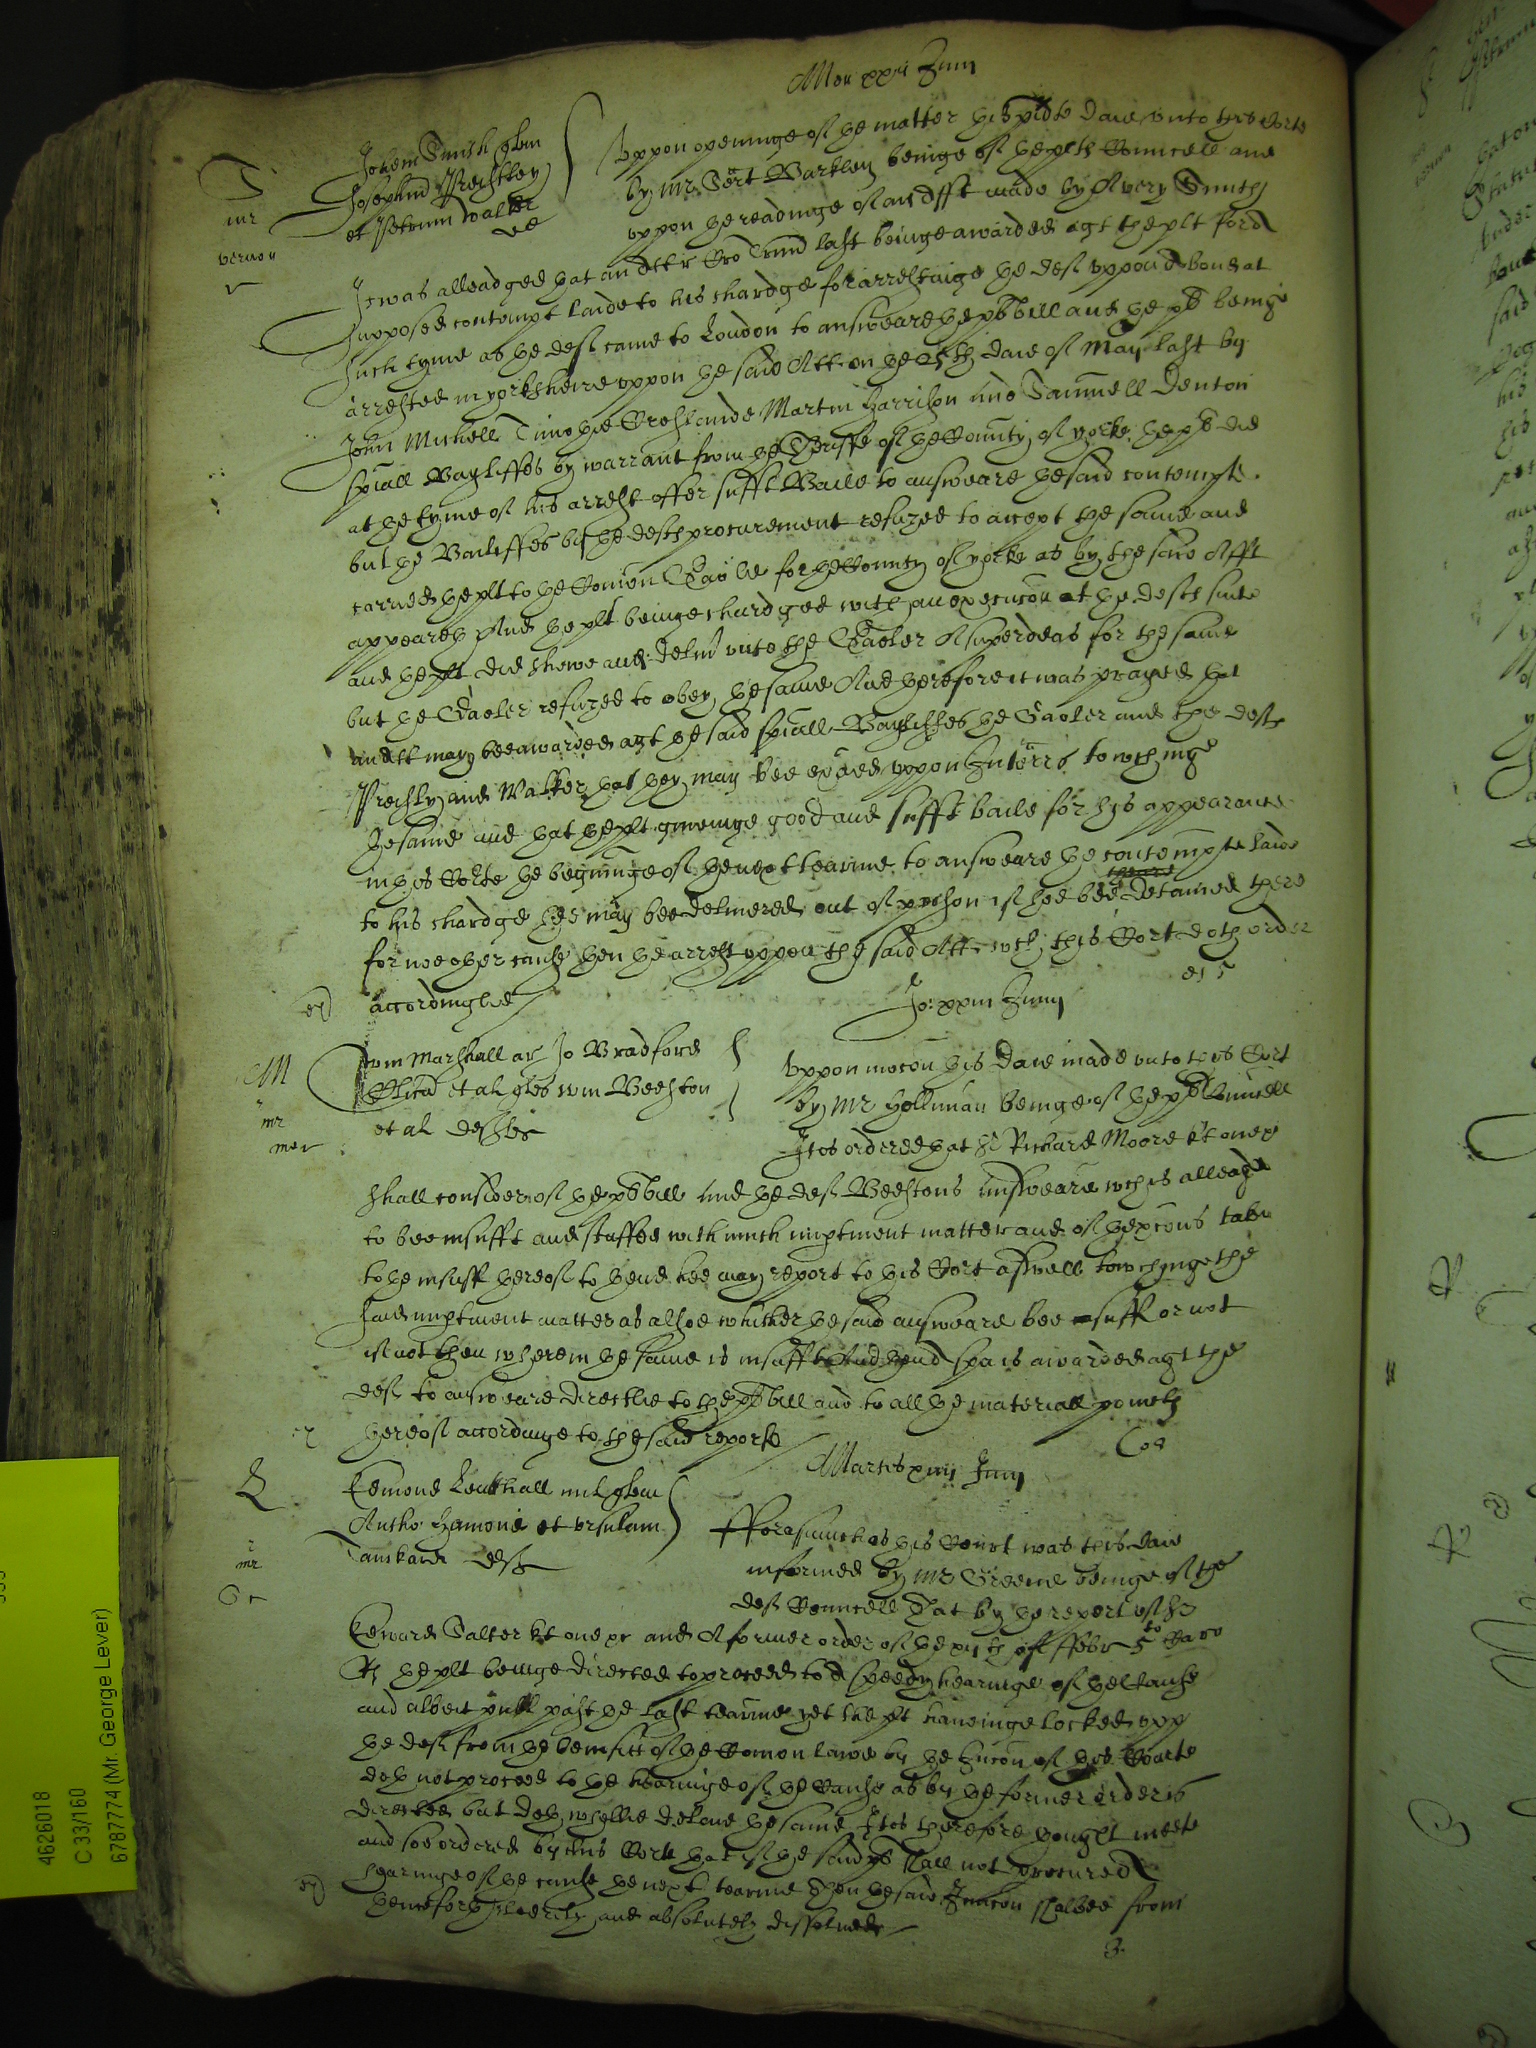 Mer xxvi Junij
S
mr
vernon
Johem Smith quer
Josephm Prestley
et Petrum Walker
def
Uppon openinge of the matter this pnte daie unto this Corte
by Mr Sert Barkley beinge of the plts Councell and
uppon the readinge of an Afft made by Avery Smith
It was alleadged that an Attt Cro Trin last beinge awarded agt the plt for a
supposed contempt laide to his chardge for arrestinge the deft uppon a bond at
such tyme as the deft came to London to answeare the pls bill and the pl beinge
arrested in yorksheire uppon the said Att on the 25th daie of May last by
John Michell Timothie Croslande Martin Harrison and Samuell Denton
spiall Bayliffes by warrant from the Sheriffe of the County of yorke the pl did
at the tyme of his arrest offer sufft Baile to answeare the said contempte
but the Bailiffes by the defts procurement refuzed to accept the same and
carried the plt to the Comon Gaole for the County of yorke as by the said Afft
appeareth And the plt beinge chardged with an execucon at the defts suite
and the plt did shewe and deliv unto the Gaoler A supersedeas for the same
but the Gaoler refuzed to obey the same And therefore it was prayed that
an Att may bee awarded agt the said spiall Bayliffes the Gaoler and the defts
Prestly and Walker that they may bee exaied uppon Interrs towchinge
the same and that the plt giveinge good and sufft baile for his appearance
in this Corte the begininge of the next tearme to answeare the contempte laide
to his chardge hee may bee delivered out of prison if hee bee detained there
for noe other cause then the arrest uppon the said Att wch this Cort doth order
ex accordinglie
Jo: xxiii Junij
M
mr
mer
Wm Marshall ar Jo Bradford
et al quer Wm Beeston
et al deftes
Uppon mocon this daie made unto this Cort
by Mr Hollman beinge of the pls Councell
It is ordered that Sr Richard Moore kt one &c
shall consider of the pls bill and the deft Beestons answeare wch is alleadged
to bee insufft and stuffed with much impertinent matter and of the excons taken
to the insuff thereof to thend hee may report to this Cort aswell towchinge the
said impertinent matter as alsoe whither the said answeare bee suff or not
if not then wherein the same is insufft And thend spa is awarded agt the
deft to answeare directlie to the pls bill and to all the materiall pointes
thereof accordinge to the said reporte
Martis xviij Junij
L
mr
Edmond Lenthall mil quer
Antho Hamond et Ursulam
Tankard deft
fforasmuch as this Court was this daie
informed by Mr Greene beinge of the
deft Councell That by the report of Sr
Edward Salter kt one &c and A former order of the xijth of ffebr 5to Caro
Rs the plt beinge directed to proceed to A speedy hearinge of the Cause
and albeit publ past the last tearme yet the plt haveinge locked upp
the deft from the benefitt of the Comon lawe by the Iniccon of this Courte
doth not proceed to the hearinge of the Cause as by the former order is
directed but doth whollie delaie the same It is therefore thought meete
and soe ordered by this Corte that if the said pl shall not procure A
hearinge of the cause the next tearme Then the said Iniccon shalbee from
thenceforth cleerely and absolutely dissolved
4626018
C 33/160
6787774 (Mr. George Lever)